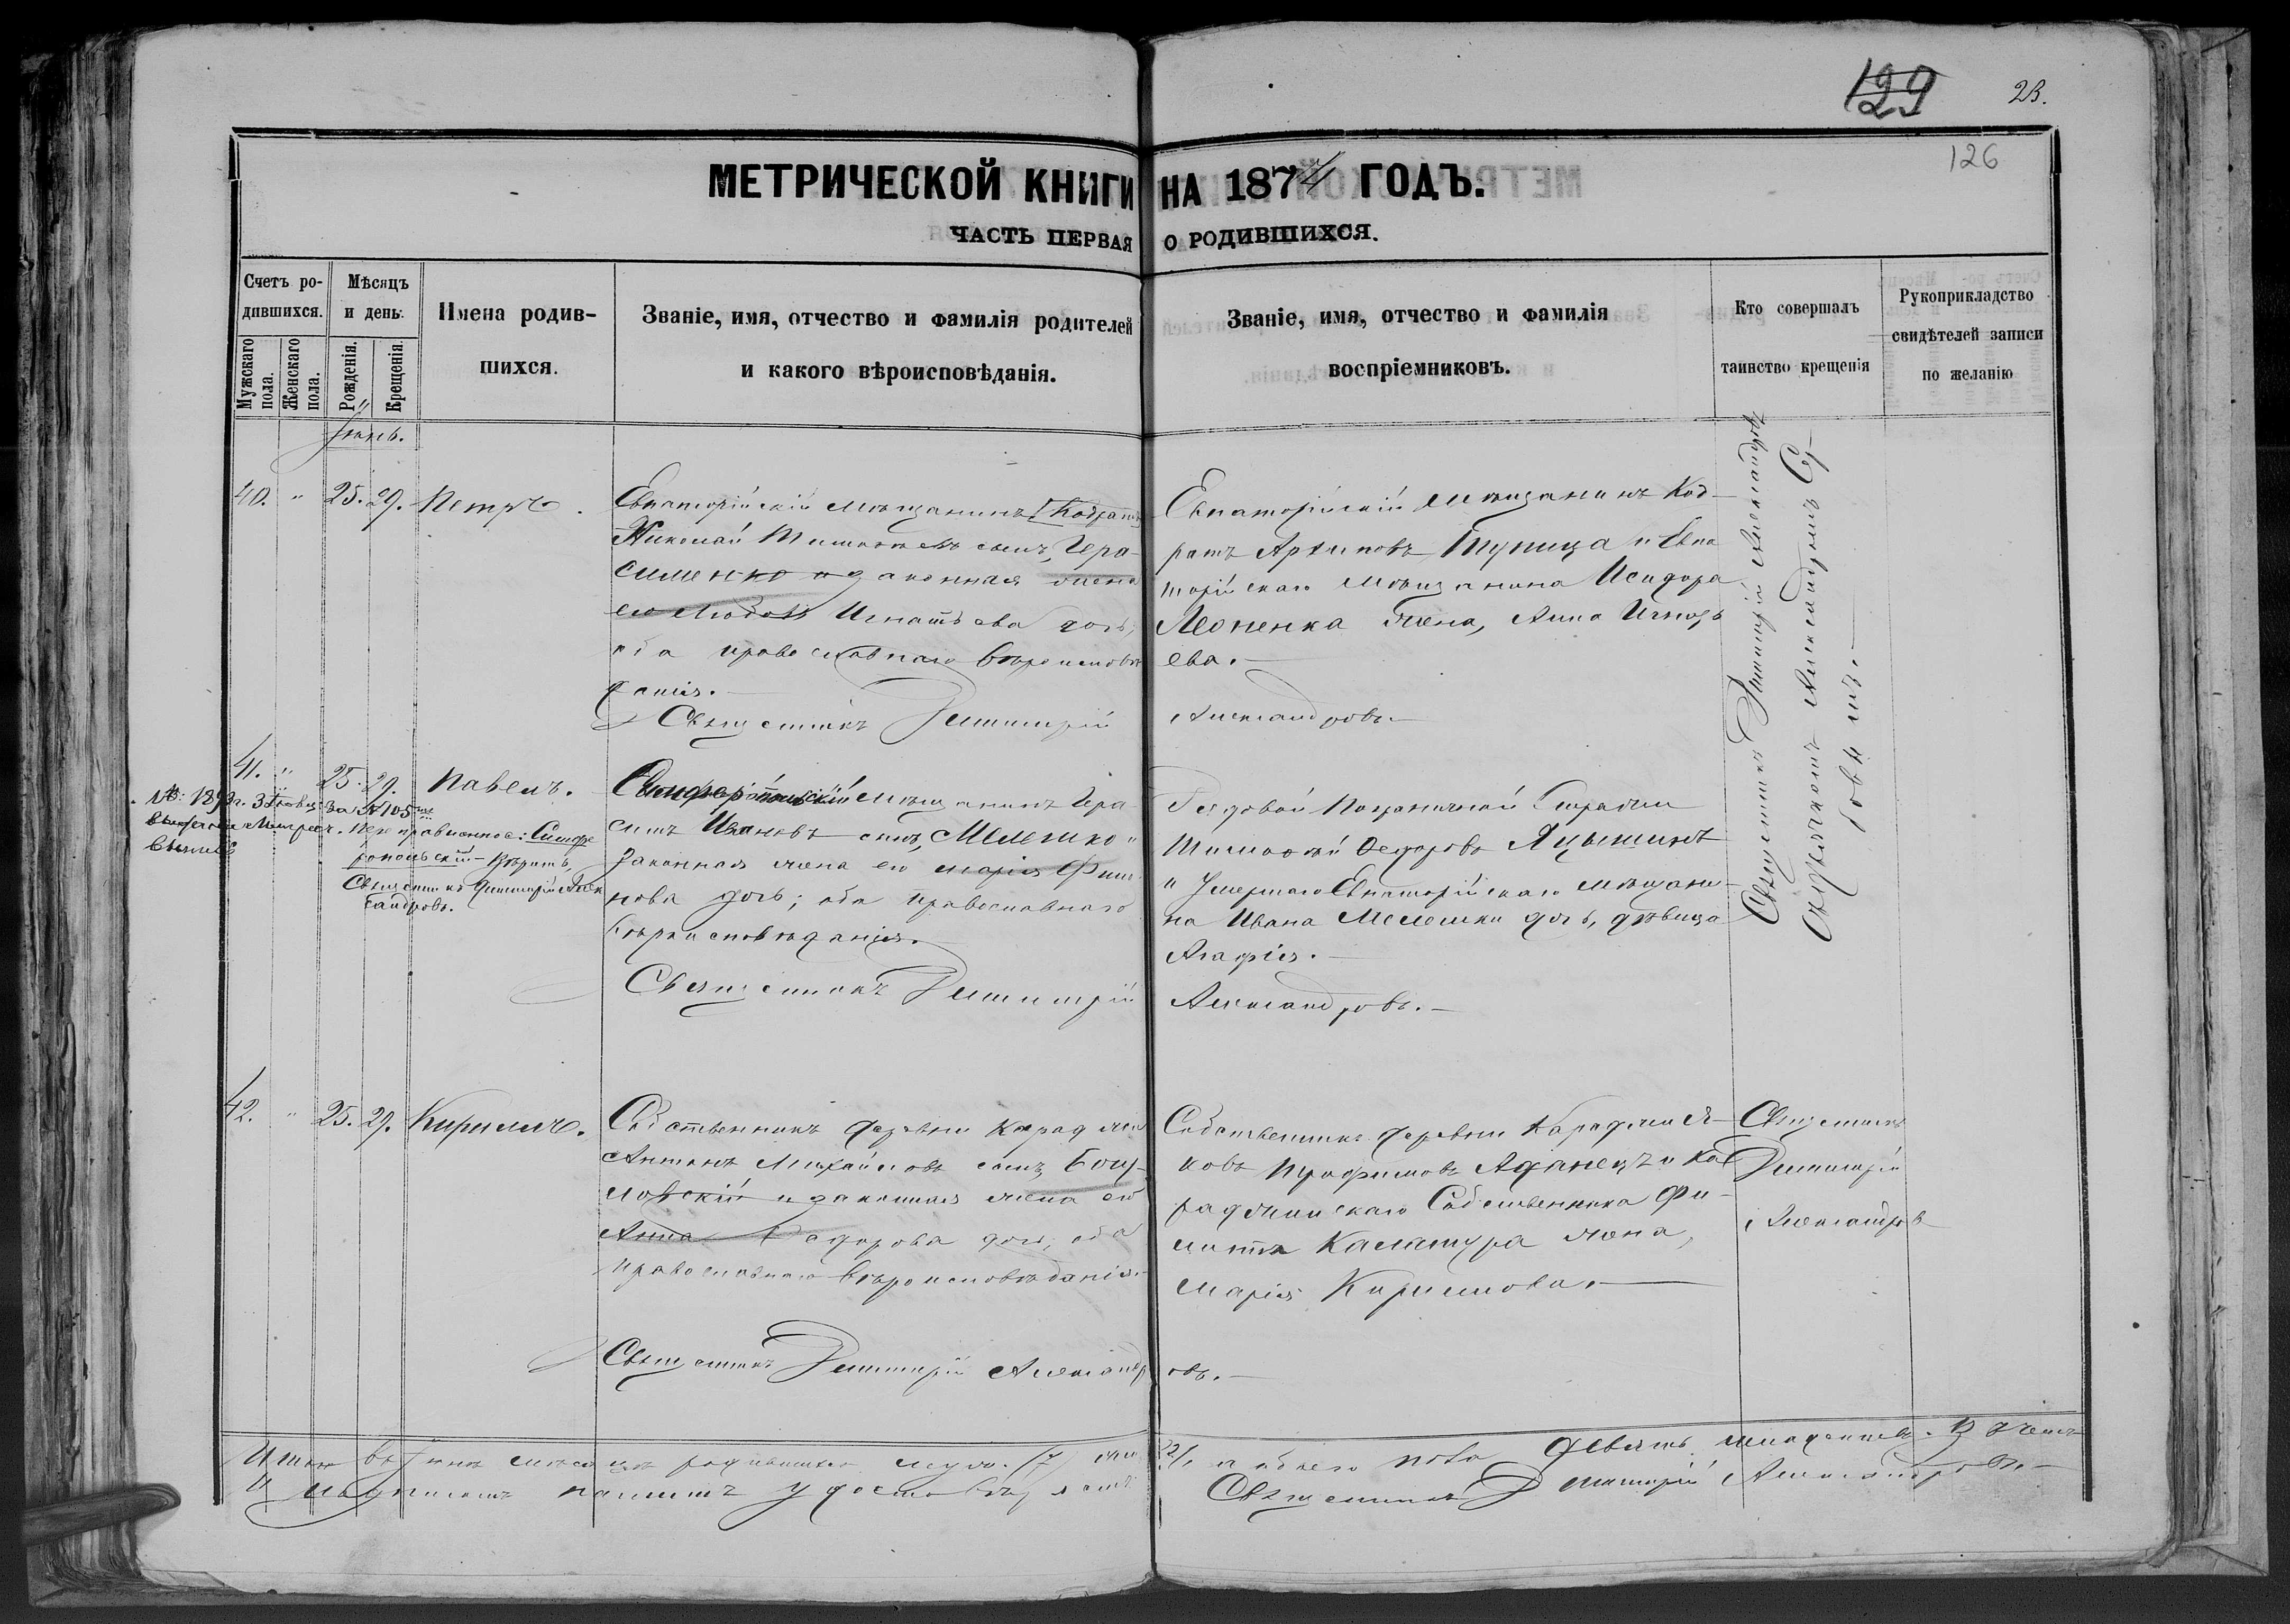 129
23.
126
МЕТРИЧЕСКОЙ КНИГИ НА 1874 ГОДЪ.
ЧАСТЬ ПЕРВАЯ О РОДИВШИХСЯ.
Счетъ родившихся.
Мужскаго пола.
Женскаго пола.
Мѣсяцъ и день.
Рожденія.
Крещенія.
Имена родив-
шихся.
Званіе, имя, отчество и фамилія родителей
и какого вѣроисповѣданія.
Званіе, имя, отчество и фамилія
воспріемниковъ.
Кто совершалъ
таинство крещенія
Рукоприкладство
свидѣтелей записи
по желанію
Іюнь.
40. " 25. 29. Петръ.
Евпаторійскій мѣщанинъ
Николай сынъ, Гера-
сименко и законная жена
его Любовь Игнатьева дочь,
оба православнаго вѣроисповѣ
данія.
Священникъ Димитрій
Евпаторійскій мѣщанинъ Код-
ратъ Архиповъ Тупица и Евпа
торійскаго мѣщанина Исидора
Леоненка жена, Анна
ева.
Александровъ.
Священникъ Димитрій Александровъ
Александръ
41. " 25. 29. Павелъ.
Симферопольскій мѣщанинъ Гера-
симъ Ивановъ сынъ, Мелешко и
законная жена его Марія
нова дочь; оба православнаго
вѣроисповѣданія.
Священникъ Димитрій
за № 105
Симфе
ропольскій
Священникъ Димитрій Алек
сандровъ.
Рядовой Пограничной Стражи
Тимофей Федоровъ Яцышинъ
и умершаго Евпаторійскаго мѣщани-
на Ивана Мелешки дочь, дѣвица
Агафія.
Александровъ.
42. " 25. 29. Кириллъ.
Собственникъ деревни Караджи
Антонъ Михайловъ сынъ,
ловскій и законная жена его
Анна Федорова дочь, оба
православнаго вѣроисповѣданія.
Священникъ Димитрій Александр
Собственникъ деревни Караджи Я-
ковъ Трофимовъ Аданецъ и Ка
раджинскаго Собственника Фи-
липпа Калатура жена,
Марія Кириллова.
овъ.
Священникъ
Димитрій
Александровъ
Итого въ Іюнѣ мѣсяцѣ родившихся муж. 7 жен. 2, а обоего пола девять младенцевъ. В чемъ
и подписомъ нашимъ удостовѣряемъ Священникъ Димитрій Александровъ